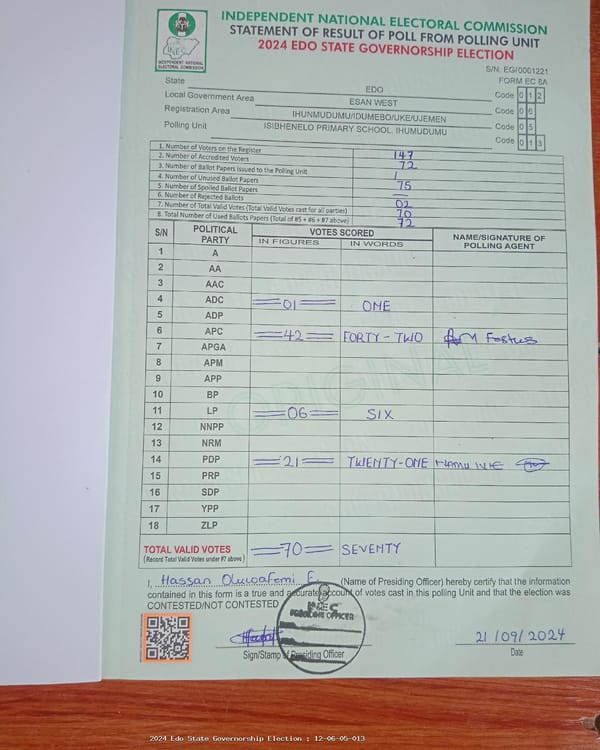 INDEPENDENT NATIONAL ELECTORAL COMMISSION
STATEMENT OF RESULT OF POLL FROM POLLING UNIT
2024 EDO STATE GOVERNORSHIP ELECTION
INEC
INDEPENDENT NATIONAL
ELECTORAL COMMISSION
S/N: EG/0001221
FORM EC 8A
State EDO Code 0 1 2
Local Government Area ESAN WEST Code 0 6
Registration Area IHUNMUDUMU/IDUMEBO/UKE/UJEMEN Code 0 5
Polling Unit ISIBHENELO PRIMARY SCHOOL, IHUMUDUMU Code 0 1 3
1. Number of Voters on the Register 147
2. Number of Accredited Voters 72
3. Number of Ballot Papers Issued to the Polling Unit
4. Number of Unused Ballot Papers 75
5. Number of Spoiled Ballot Papers —
6. Number of Rejected Ballots 02
7. Number of Total Valid Votes (Total Valid Votes cast for all parties) 70
8. Total Number of Used Ballots Papers (Total of #5 + #6 + #7 above) 72
S/N POLITICAL PARTY VOTES SCORED NAME/SIGNATURE OF POLLING AGENT
IN FIGURES IN WORDS
1 A
2 AA
3 AAC
4 ADC =01= ONE
5 ADP
6 APC =42= FORTY-TWO Festus
7 APGA
8 APM
9 APP
10 BP
11 LP =06= SIX
12 NNPP
13 NRM
14 PDP =21= TWENTY-ONE
15 PRP
16 SDP
17 YPP
18 ZLP
ORIGINAL
TOTAL VALID VOTES =70= SEVENTY
(Record Total Valid Votes under #7 above)
I, Hassan Oluwafemi F. (Name of Presiding Officer) hereby certify that the information
contained in this form is a true and accurate account of votes cast in this polling Unit and that the election was
CONTESTED/NOT CONTESTED
INEC
PRESIDING OFFICER
21/09/2024
Sign/Stamp of Presiding Officer Date
2024 Edo State Governorship Election : 12-06-05-013